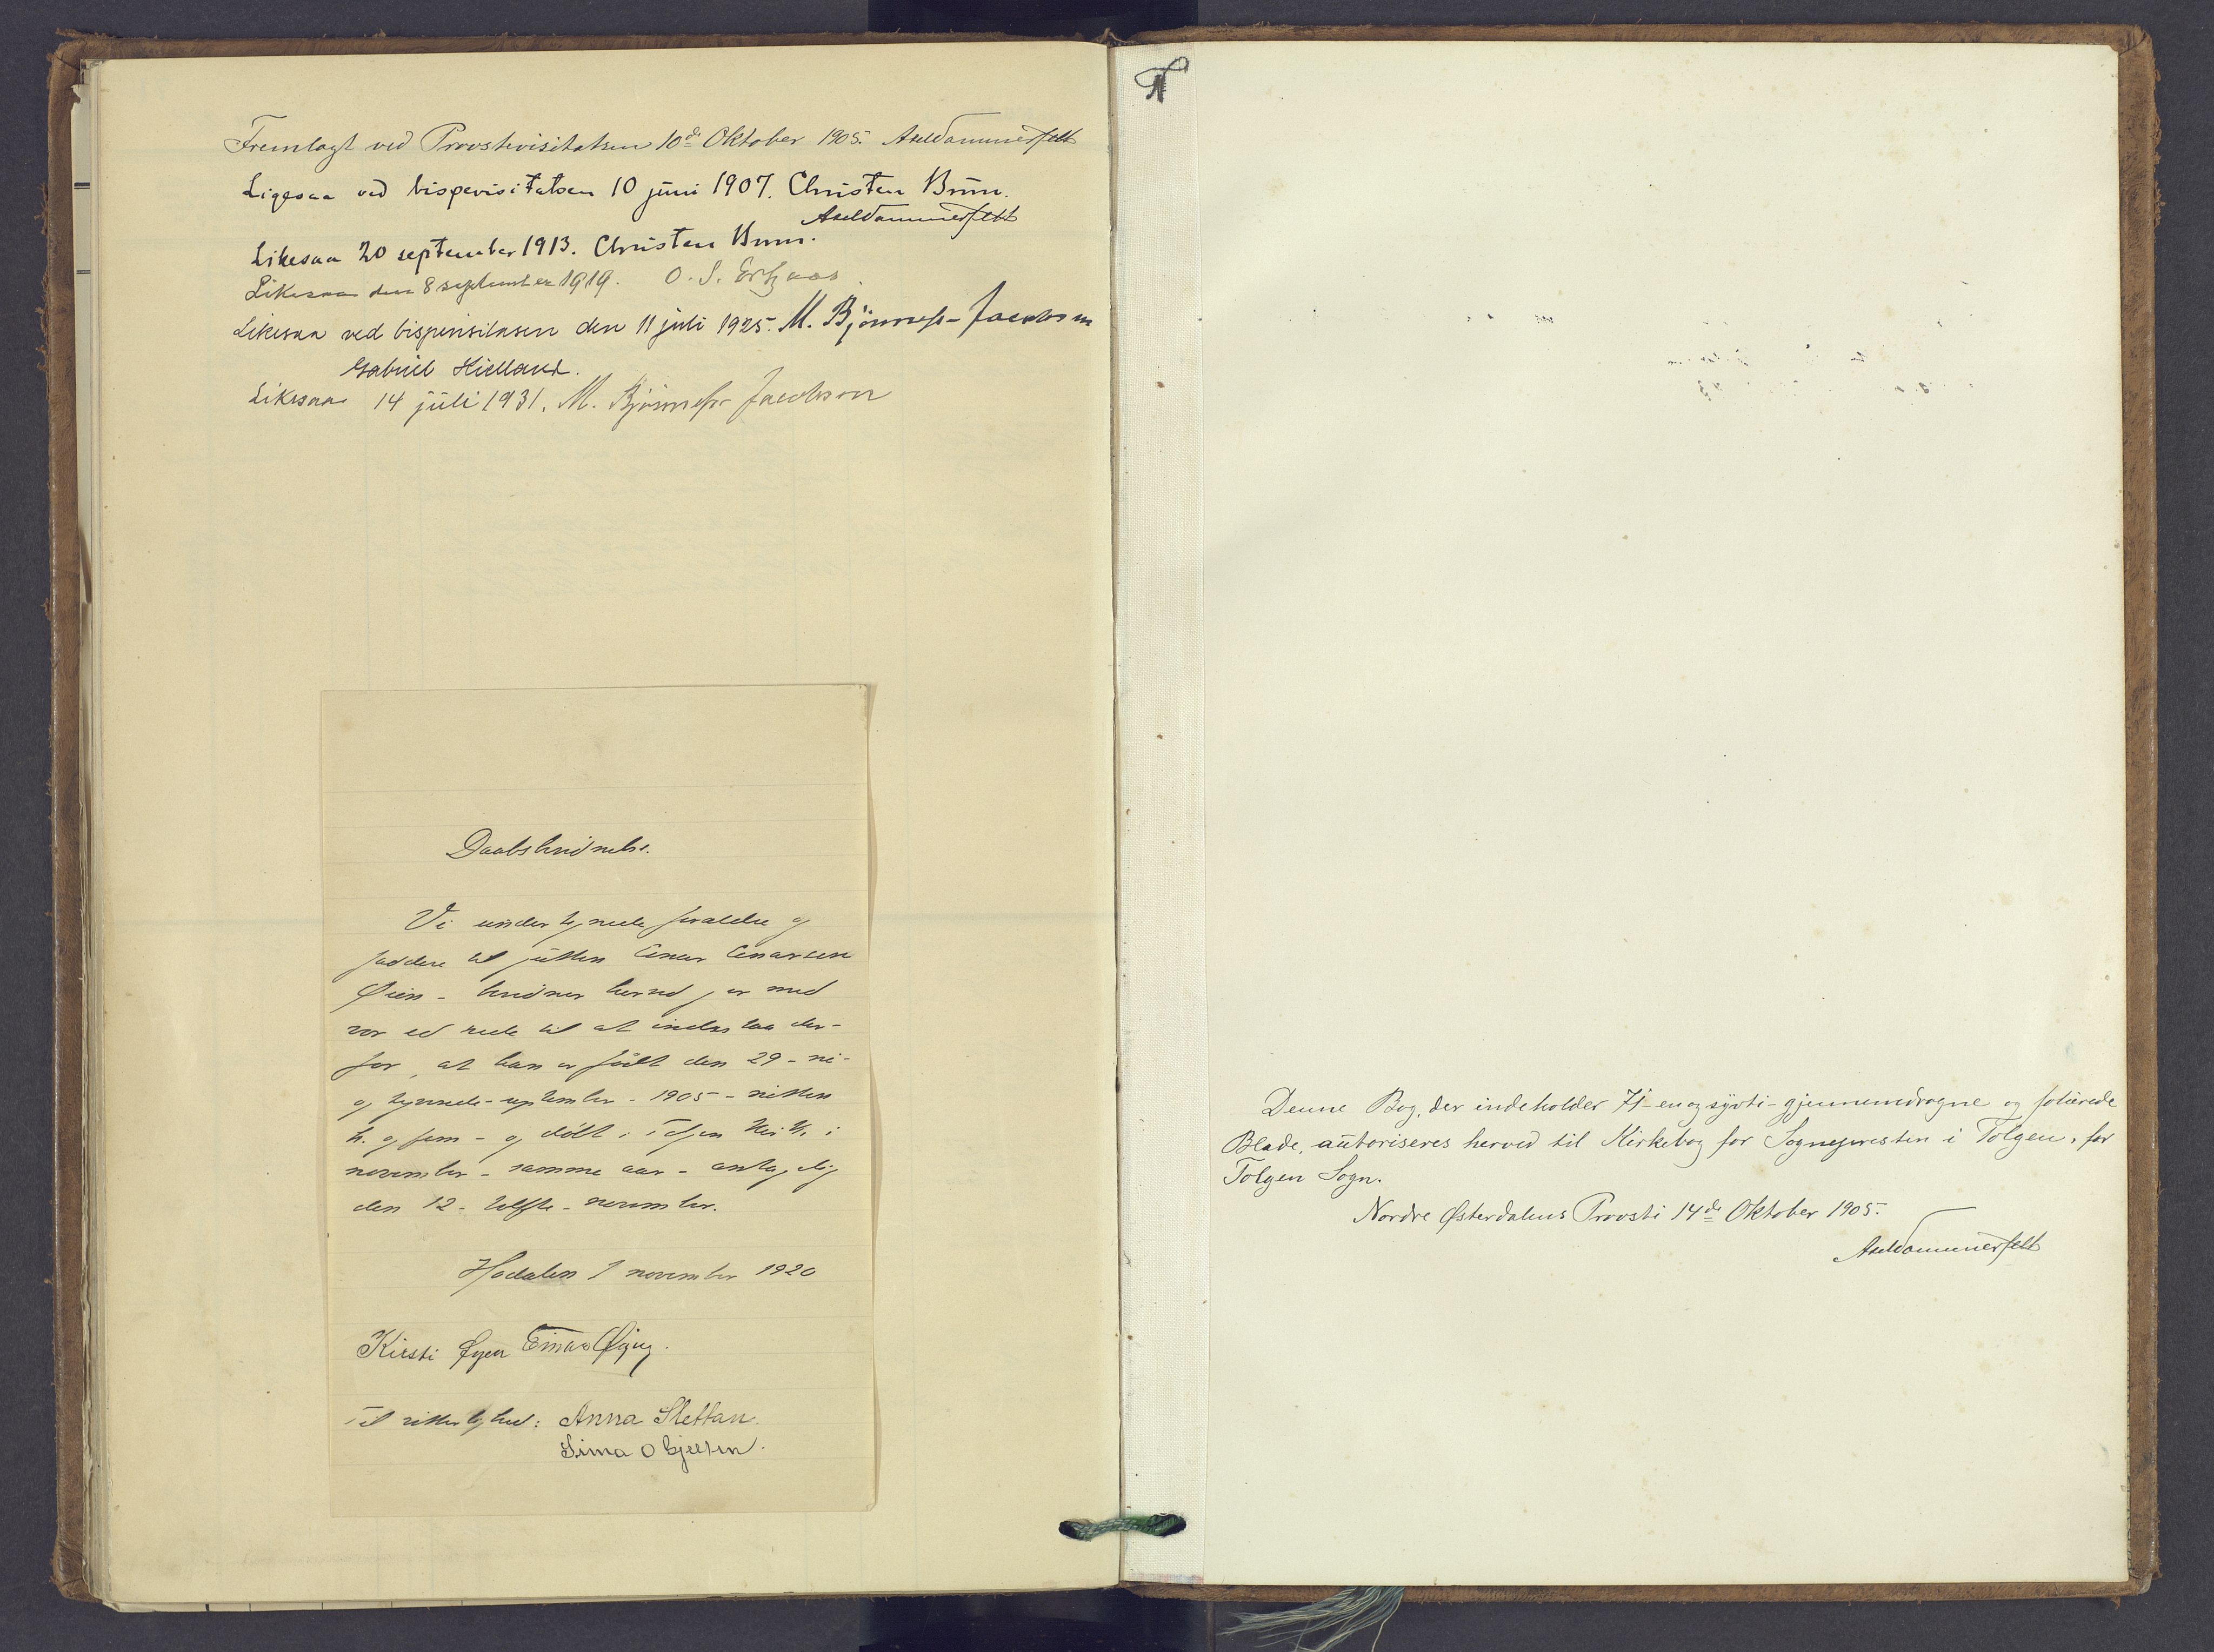 Fremlagt ved Provstevisitatsen 10de Oktober 1905. Axel Dammerfelt
Ligesaa ved bispevisitatsen 10 juni 1907. Christen Brun.
Axel Dammerfelt
Likesaa 20 september 1913. Christen Brun.
Likesaa den 8 september 1919. O. S.
Likesaa ved bispevisitasen den 11 juli 1925. M. Bjønness-Jacobsen
Gabriel Kielland.
Likesaa 14 juli 1931. M. Bjønness-Jacobsen
Daabsvidnelse.
Vi undertegnede foraldre og
faddere til gutten Einar Einarsen
Øien - bevidner herved, er med
vor ed rede til at indestaa der-
for, at han er født den 29 - ni-
og tyvende - september - 1905 - nitten
h. og fem - og døbt i Tolgen kirke i
november - samme aar - antagelig
den 12 - tolfte - november.
Hodalen 1 november 1920
Kirsti Øyen Einar Øyen.
Til vitterlighed: Anna Slettan.
Sina O Kjelsen.
Denne Bog, der indeholder 71 - en og sytti - gjennemdragne og folierede
Blade, autoriseres herved til Kirkebog for Sognepresten i Tolgen, for
Tolgen Sogn.
Nordre Østerdalens Provsti 14de Oktober 1905.
Axel Dammerfelt